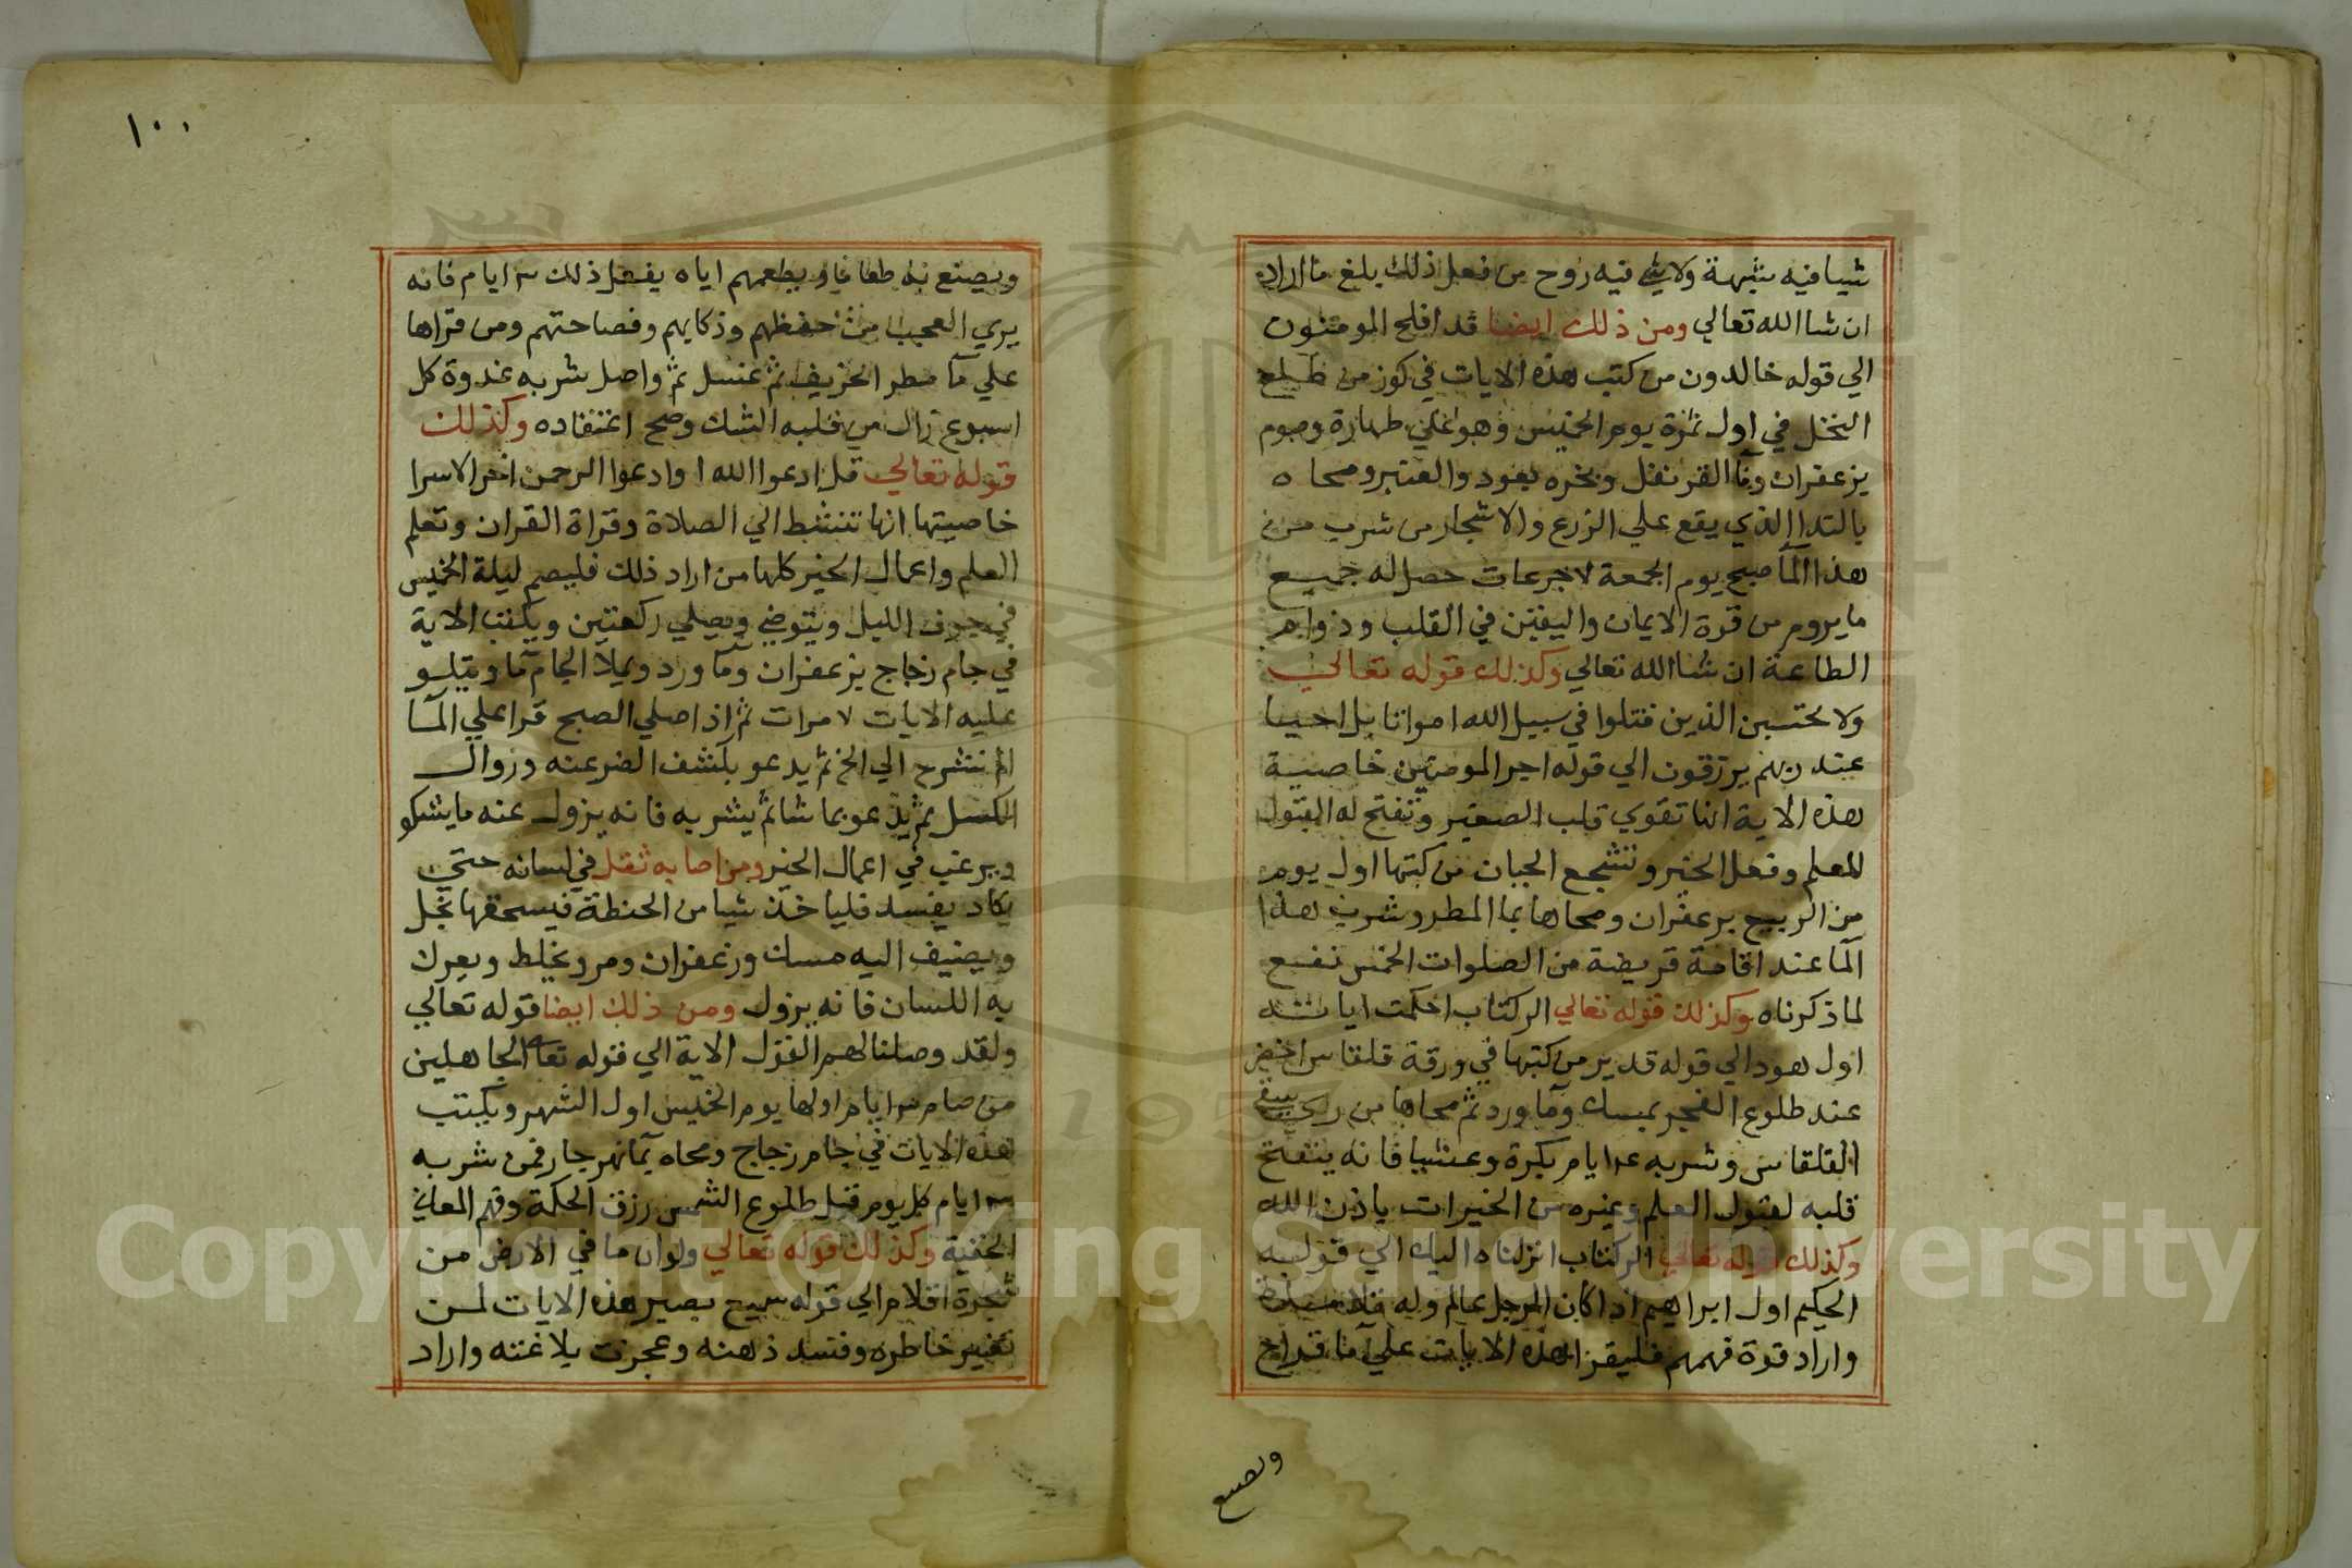 شيا فيه شبهة ولا شي فيه روح من فعل ذلك يلغ ما اراد
ان شا الله تعالي ومن ذلك ايضا قد افلح المومنون
الي قوله خالدون من كتب هذه الايات في كوز من طلع
النخل في اول ثمرة يوم الخميس وهو علي طهارة وصوم
بزعفران وما القرنفل وبخره بعود والعنبر ومحا ه
بالندا الذي يقع علي الزرع والاشجار من شرب من
هذا المآ صبح يوم الجمعة ٧ جرعات حصل له جميع
ما يروم من قوة الايمان واليقين في القلب ودوام
الطاعة ان شا الله تعالي وكذلك قوله تعالي
ولا تحسبن الذين قتلوا في سبيل الله امواتا بل احيا
عند ربهم يرزقون الي قوله اجر المومنين خاصية
هذه الاية انها تقوي قلب الصغير وتفتح له القبول
للعلم وفعل الخير وتشجع الجبان من كتبها اول يوم
من الربيع بزعفران ومحاها بما المطر وشرب هذا
المآ عند اقامة فريضة من الصلوات الخمس نفع
لما ذكرناه وكذلك قوله تعالي الر كتاب احكمت اياته
اول هود الي قوله قدير من كتبها في ورقة قلقاس اخضر
عند طلوع الفجر بمسك وما ورد ثم محاها من
القلقاس وشربه ٤ ايام بكرة وعشيا فانه ينفتح
قلبه لقبول العلم وغيره من الخيرات باذن الله
وكذلك قوله تعالي الر كتاب انزلناه اليك الي قوله
الحكيم اول ابراهيم اذا كان الرجل عالم وله
واراد قوة فهمهم فليقرا هذه الايات علي ما قداح
ويصنع
١٠٠
ويصنع به طعاما ويطعمهم اياه يفعل ذلك ٣ ايام فانه
يري العجب من حفظهم وذكايهم وفصاحتهم ومن قراها
علي مآ مطر الخريف ثم عسل ثم واصل شربه غدوة كل
اسبوع زال من قلبه الشك وصح اعتقاده وكذلك
قوله تعالي قل ادعوا الله او ادعوا الرحمن اخر الاسرا
خاصيتها انها تنشط الي الصلاة وقراة القران وتعلم
العلم واعمال الخير كلها من اراد ذلك فليصم ليلة الخميس
في جوف الليل ويتوضي ويصلي ركعتين ويكتب الاية
في جام زجاج بزعفران وما ورد ويملا الجام مآ ويتلو
عليه الايات ٧ مرات ثم اذا صلي الصبح قرا علي المآ
الم نشرح الي اخ ثم يدعو بكشف الضر عنه وزوال
الكسل ثم يدعو بما شا ثم يشربه فانه يزول عنه ما يشكو
ويرغب في اعمال الخير ومن اصابه ثقل في لسانه حتي
يكاد يفسد فلياخذ شيا من الحنطة فيسحقها بخل
ويضيف اليه مسك وزعفران ومر ويخلط ويعرك
به اللسان فانه يزول ومن ذلك ايضا قوله تعالي
ولقد وصلنا لهم القول الاية الي قوله تعا الجاهلين
من صام ٣ ايام اولها يوم الخميس اول الشهر ويكتب
هذه الايات في جام زجاج ومحاه بمآ نهر جار فمن شربه
٣ ايام كل يوم قبل طلوع الشمس رزق الحكمة وفهم المعاني
الخفية وكذلك قوله تعالي ولو ان ما في الارض من
شجرة اقلام الي قوله سميع بصير هذه الايات لمن
تغير خاطره وفسد ذهنه وعجزت بلاغته واراد
Copyright © King Saud University